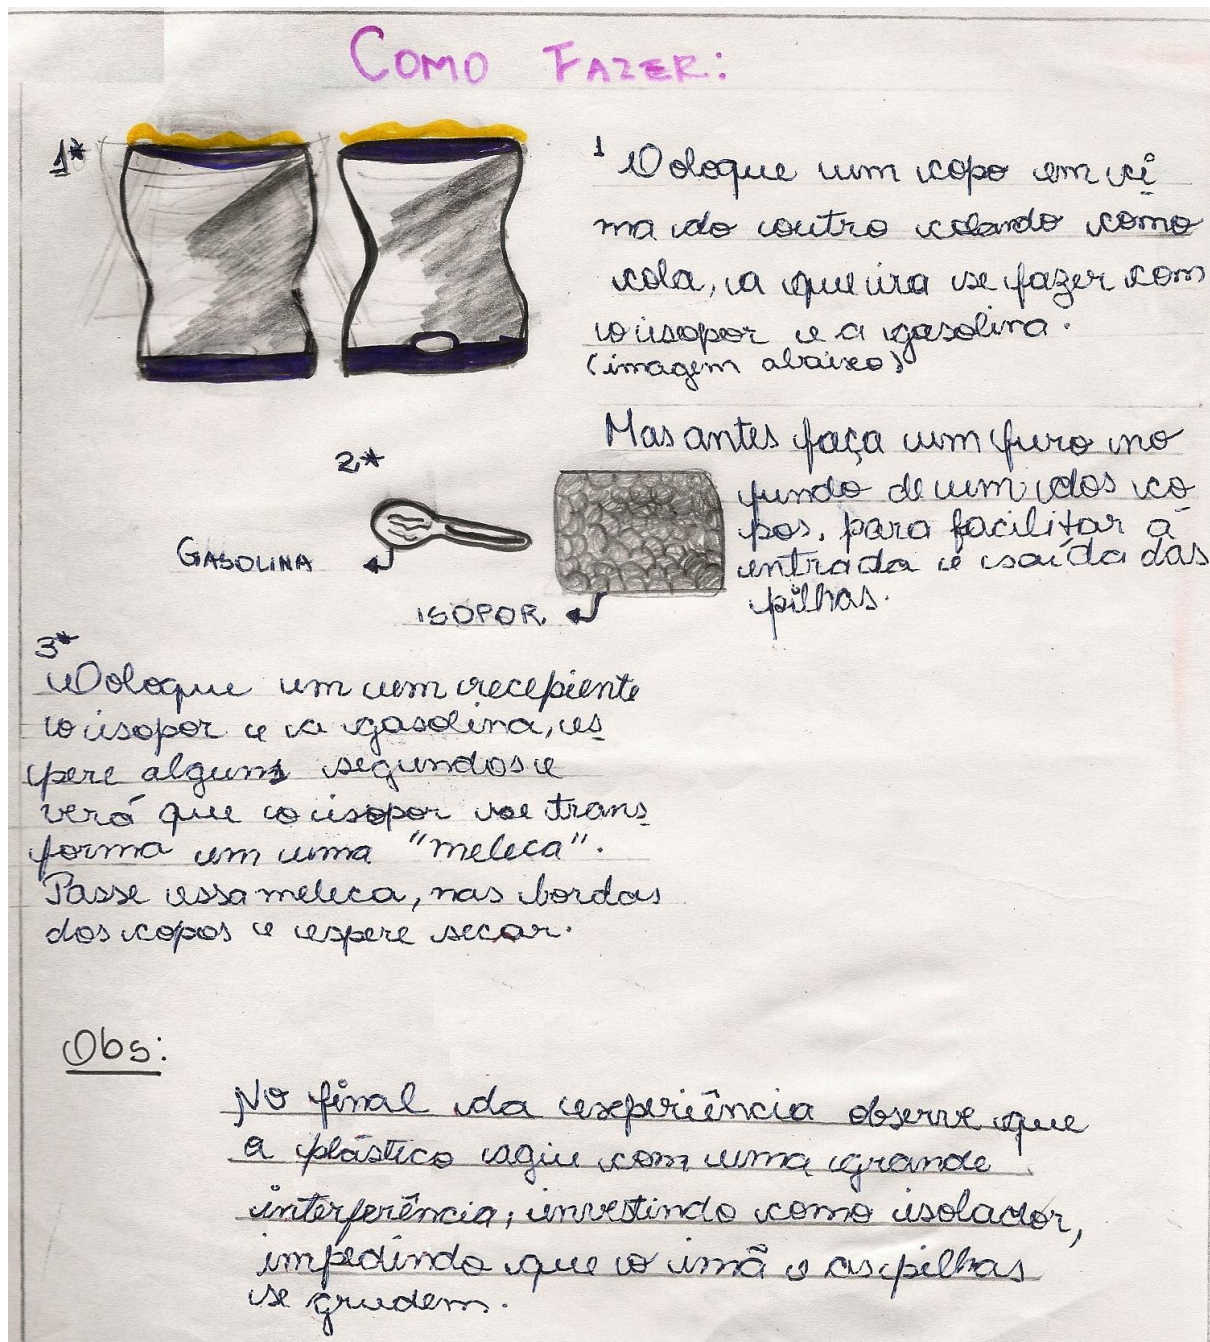 COMO FAZER:
1*
1 Coloque um copo em ci
ma do outro colando como
cola, a que ira se fazer com
o isopor e a gasolina.
(imagem abaixo)
Mas antes faça um furo no
fundo de um dos co
pos, para facilitar a
entrada e saída das
pilhas.
2*
GASOLINA
ISOPOR.
3*
Coloque em um recepiente
o isopor e a gasolina, es
pere alguns segundos e
verá que o isopor se trans
forma em uma "meleca".
Passe essa meleca, nas bordas
dos copos e espere secar.
Obs:
No final da experiência observe que
a plástico agiu com uma grande
interferência, investindo como isolador,
impedindo que o imã e as pilhas
se grudem.